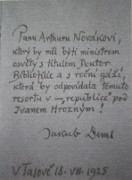 Panu Arthuru Novákovi,
který by měl býti ministrem
osvěty s titulem Doctor
Bibliofilie a s roční gáží,
která by odpovídala tomuto
resortu v — „republice" pod
Ivanem Hrozným!
Jakub Deml
V Tasově 18. VII. 1925